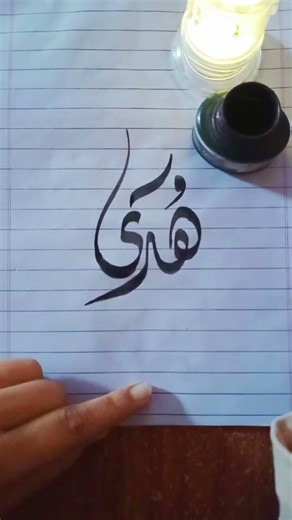 هُدى